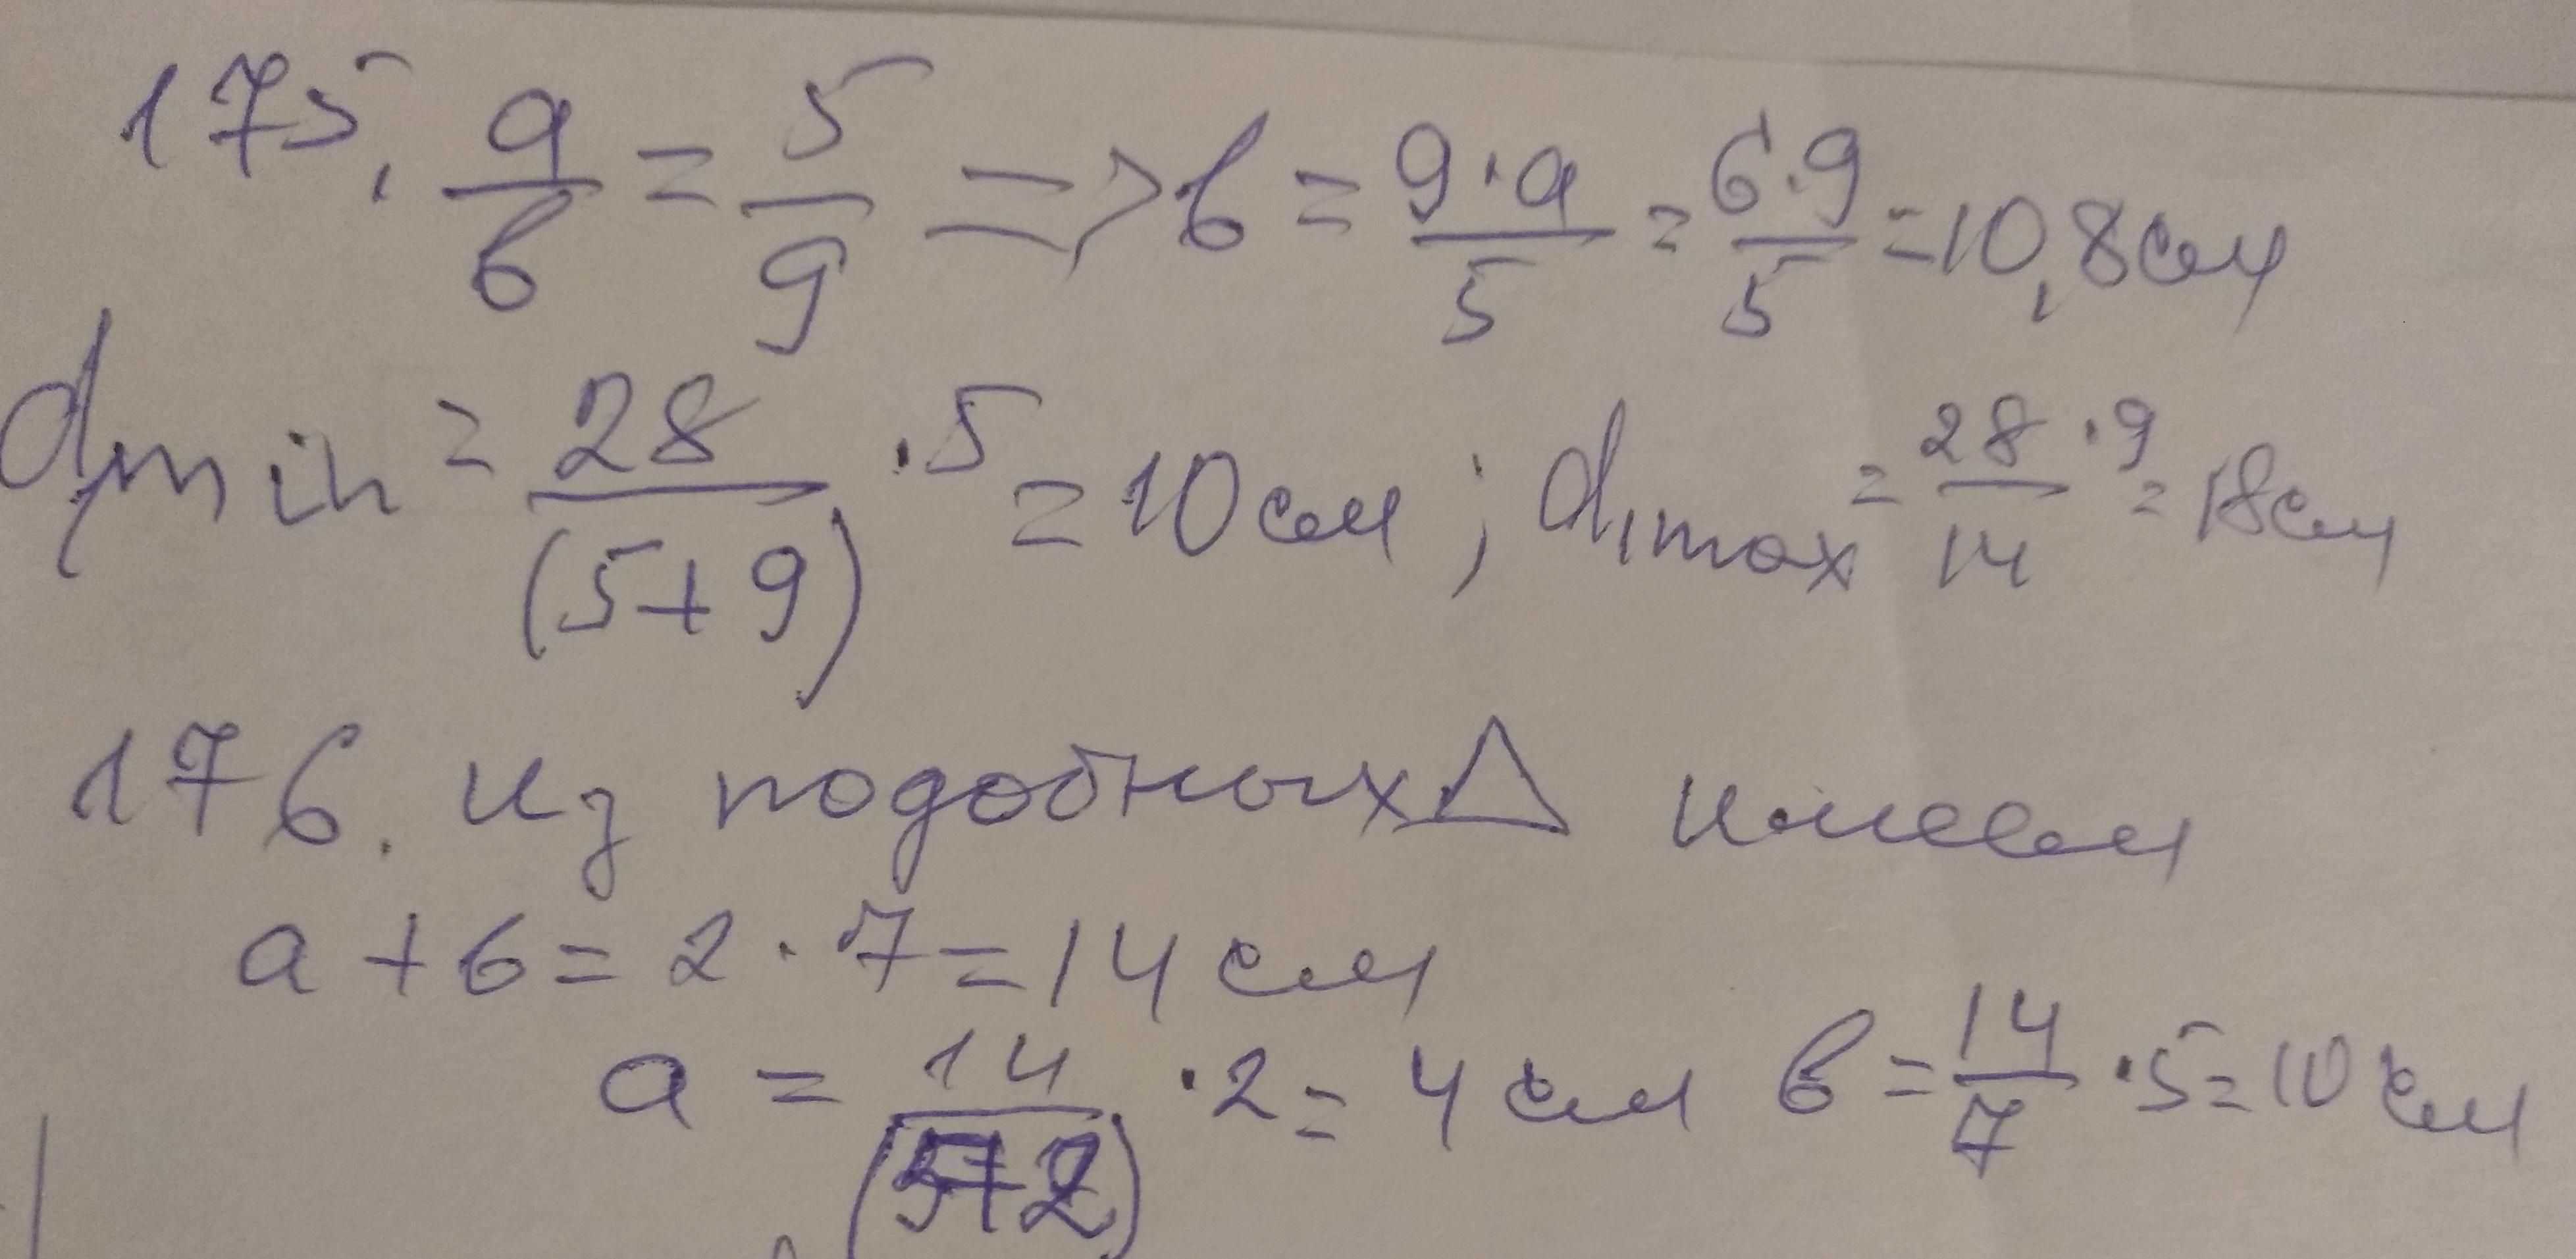 175. a/в = 5/9 => в = 9·a/5 = 6·9/5 = 10,8 см
d₁min = 28/(5+9) · 5 = 10 см ; d₁max = 28/14 · 9 = 18 см
176. из подобных △ имеем
a + в = 2 · 7 = 14 см
a = 14/(5+2) · 2 = 4 см в = 14/7 · 5 = 10 см